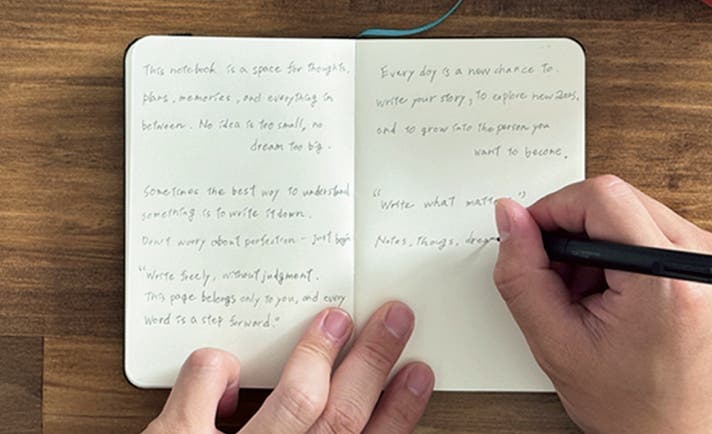 This notebook is a space for thoughts,
plans, memories, and everything in
between. No idea is too small, no
dream too big.
Sometimes the best way to understand
something is to write it down.
Don't worry about perfection - just begin
"Write freely, without judgment.
This page belongs only to you, and every
word is a step forward."
Every day is a new chance to
write your story, to explore new
and to grow into the person you
want to become.
"Write what
Notes,